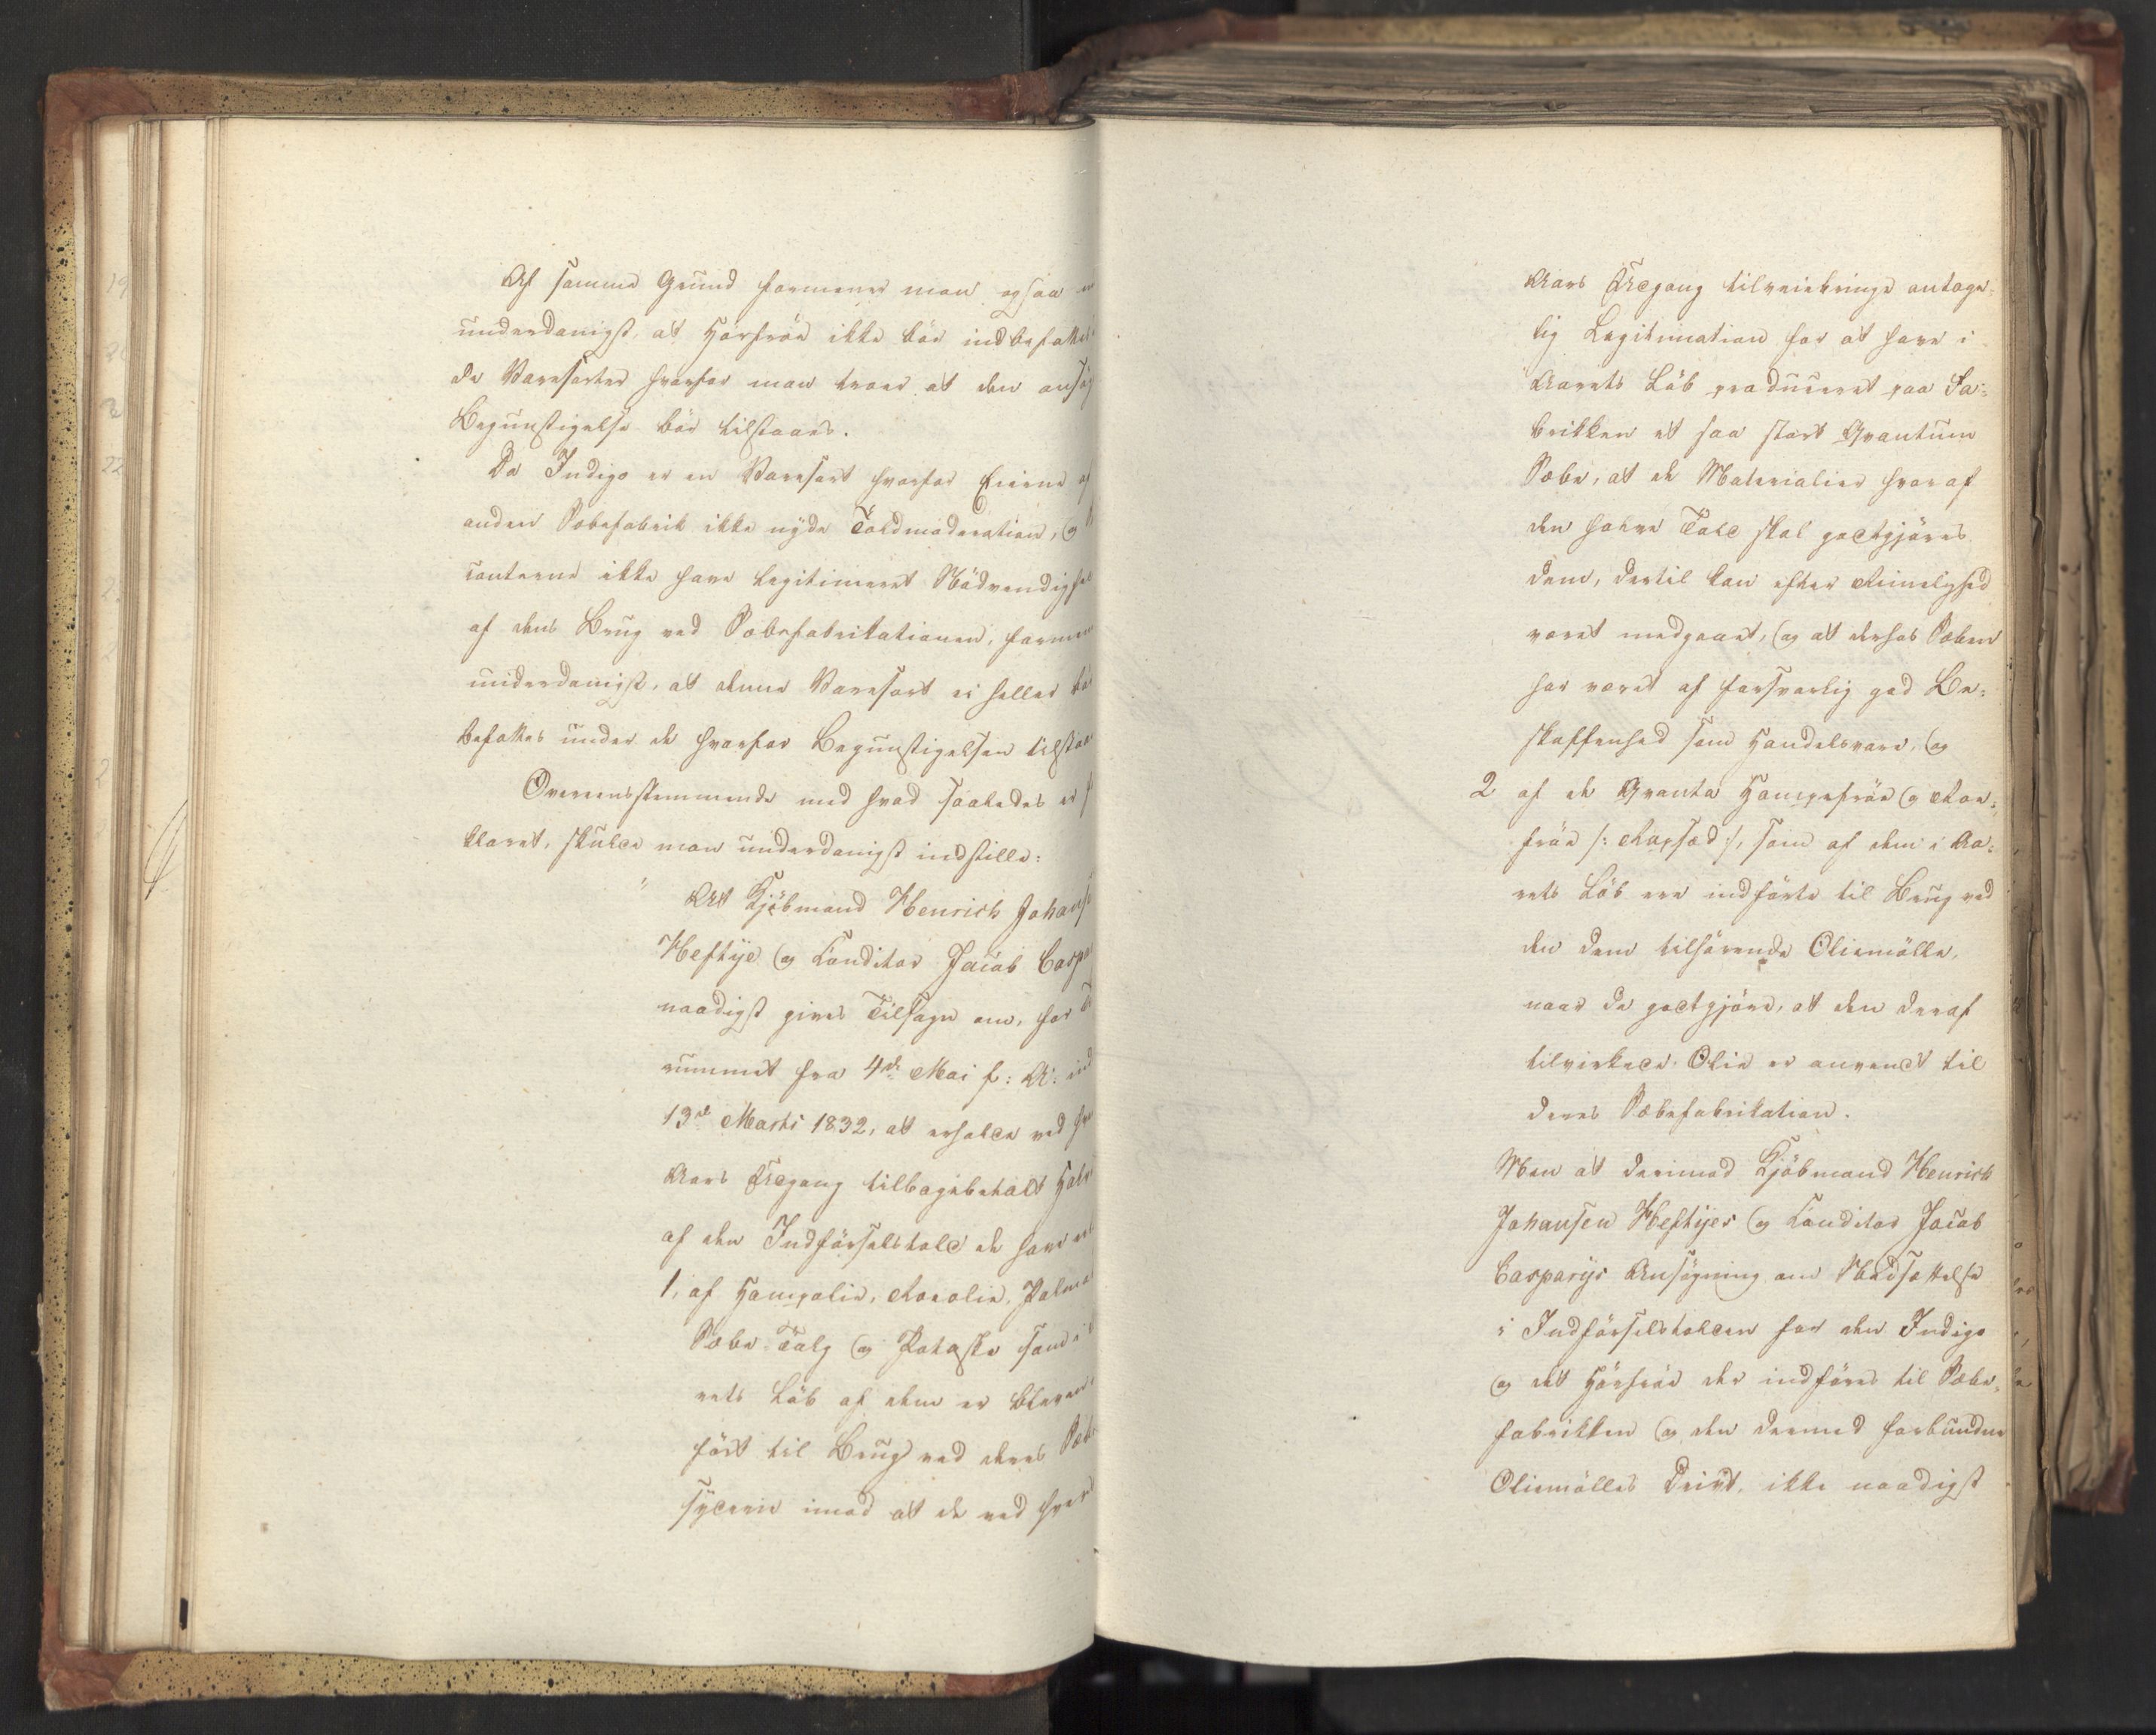 Af samme Grund formener man ogsaa
underdanigst, at Hørfrøe ikke bør indbefattes
de Varesorter hvorfor man troer at den ansøg
Begunstigelse bør tilstaaes.
Da Indigo er en Varesort hvorfor Eierne af
anden Sæbefabrik ikke nyde Toldmoderation, og
canterne ikke have legitimeret Nødvendighe
af dens Brug ved Sæbefabrikationen, formene
underdanigst, at denne Varesort ei heller bør
befattes under de hvorfor Begunstigelsen tilstaae
Overeensstemmende med hvad saaledes er
klaret, skulde man underdanigst indstille:
" At Kjøbmand Henrich Johanse
Heftÿe og Conditor Jacob Caspa
naadigst gives Tilsagn om, for
rummet fra 4de Mai f: A: ind
13de Marts 1832, at erholde ved hve
Aars Udgang tilbagebetalt Halv
af den Indførselstold de have
1, af Hampolie, Roeolie, Palme
Sæbe Talg og Potaske som i
rets Løb af dem er bleven
ført til Brug ved deres Sæbe
syderie imod at de ved hvert
Aars Udgang tilveiebringe antage-
lig Legitimation for at have i
Aarets Løb produceret paa Fa-
brikken et saa stort Qvantum
Sæbe, at de Materialier hvoraf
den halve Told skal godtgjøres
dem, dertil kan efter Rimelighed
været medgaaet, og at derhos Sæben
har været af forsvarlig god Be-
skaffenhed som Handelsvare, og
2 af de Qvanta Hampefrøe og Roe-
frøe /: Rapsæd :/, som af dem i Aa-
rets Løb ere indførte til Brug ved
den dem tilhørende Oliemølle,
naar de godtgjøre, at den deraf
tilvirkede Olie er anvendt til
deres Sæbefabrikation.
Men at derimod Kjøbmand Henrich
Johansen Heftÿes og Conditor Jacob
Casparÿs Ansøgning om Nedsættelse
i Indførselstolden for den Indigo
og det Hørfrøe der indføres til Sæbe-
fabrikken og den dermed forbundne
Oliemølles Drivt, ikke naadigst